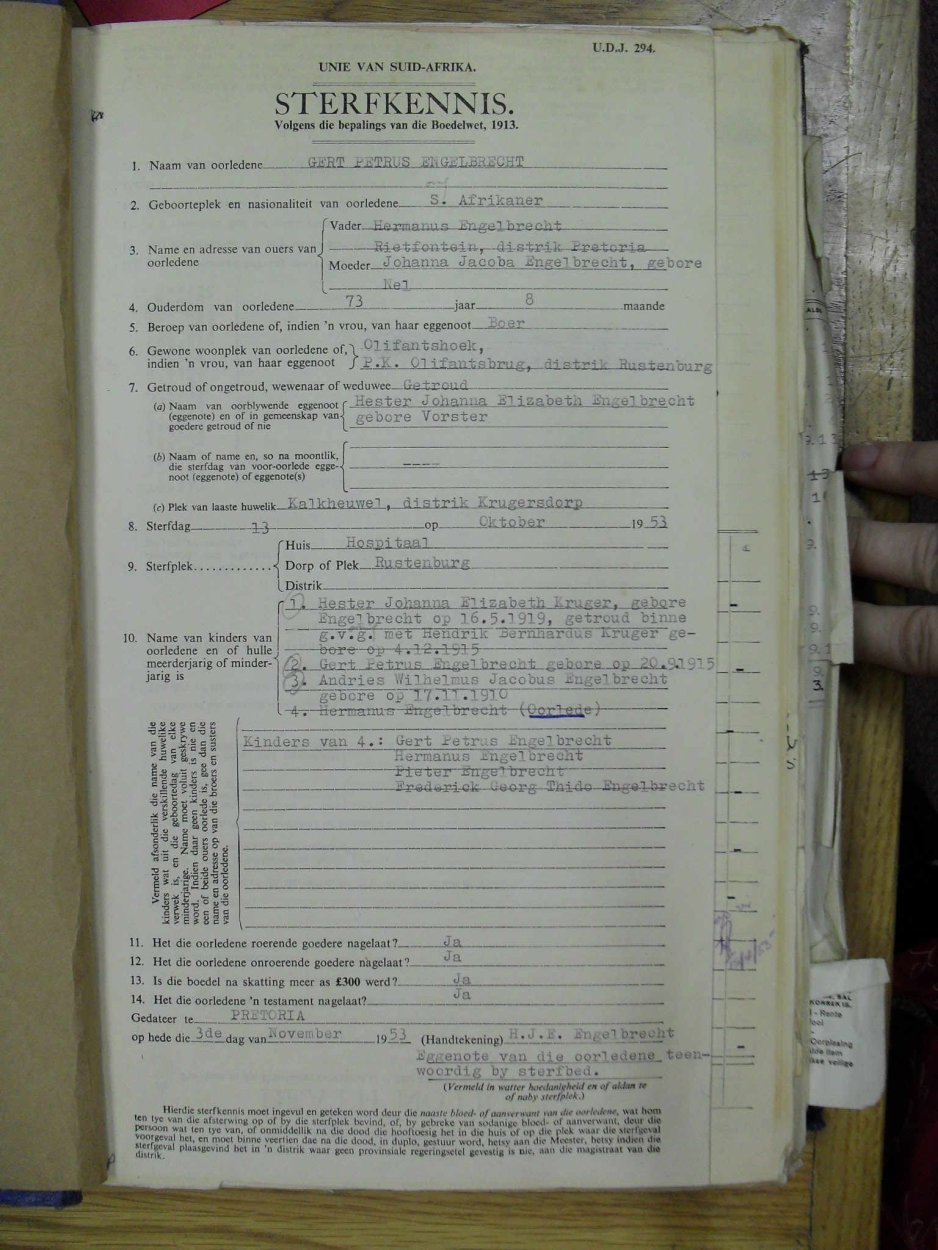 U.D.J. 294.
UNIE VAN SUID-AFRIKA.
STERFKENNIS.
Volgens die bepalings van die Boedelwet, 1913.
1. Naam van oorledene GERT PETRUS ENGELBRECHT
2. Geboorteplek en nasionaliteit van oorledene S. Afrikaner
3. Name en adresse van ouers van oorledene
Vader Hermanus Engelbrecht
Rietfontein, distrik Pretoria
Moeder Johanna Jacoba Engelbrecht, gebore
Nel
4. Ouderdom van oorledene 73 jaar 8 maande
5. Beroep van oorledene of, indien 'n vrou, van haar eggenoot Boer
6. Gewone woonplek van oorledene of, Olifantshoek,
indien 'n vrou, van haar eggenoot P.K. Olifantsbrug, distrik Rustenburg
7. Getroud of ongetroud, wewenaar of weduwee Getroud
(a) Naam van oorblywende eggenoot Hester Johanna Elizabeth Engelbrecht
(eggenote) en of in gemeenskap van gebore Vorster
goedere getroud of nie
(b) Naam of name en, so na moontlik,
die sterfdag van voor-oorlede egge- ----
noot (eggenote) of eggenote(s)
(c) Plek van laaste huwelik Kalkheuwel, distrik Krugersdorp
8. Sterfdag 13 op Oktober 1953
9. Sterfplek............
Huis Hospitaal
Dorp of Plek Rustenburg
Distrik
10. Name van kinders van
oorledene en of hulle
meerderjarig of minder-
jarig is
1. Hester Johanna Elizabeth Kruger, gebore
Engelbrecht op 16.5.1919, getroud binne
g.v.g. met Hendrik Bernhardus Kruger ge-
bore op 4.12.1915
2. Gert Petrus Engelbrecht gebore op 20.9.1915
3. Andries Wilhelmus Jacobus Engelbrecht
gebore op 17.11.1910
4. Hermanus Engelbrecht (Oorlede)
Vermeld afsonderlik die name van die
kinders wat uit die verskillende huwelike
verwek is, en die geboortedag van elke
minderjarige. Name moet voluit geskrywe
word. Indien daar geen kinders is nie en
een of beide ouers oorlede is, gee dan die
name en adresse op van die broers en susters
van die oorledene.
Kinders van 4.: Gert Petrus Engelbrecht
Hermanus Engelbrecht
Pieter Engelbrecht
Frederick Georg Thido Engelbrecht
11. Het die oorledene roerende goedere nagelaat? Ja
12. Het die oorledene onroerende goedere nagelaat? Ja
13. Is die boedel na skatting meer as £300 werd? Ja
14. Het die oorledene 'n testament nagelaat? Ja
Gedateer te PRETORIA
op hede die 3de dag van November 1953 (Handtekening) H.J.E. Engelbrecht
Eggenote van die oorledene teen-
woordig by sterfbed.
(Vermeld in watter hoedanigheid en of aldan te
of naby sterfplek.)
Hierdie sterfkennis moet ingevul en geteken word deur die naaste bloed- of aanverwant van die oorledene, wat hom
ten tye van die afsterwing op of by die sterfplek bevind, of, by gebreke van sodanige bloed- of aanverwant, deur die
persoon wat ten tye van, of onmiddellik na die dood die hooftoesig het in die huis of op die plek waar die sterfgeval
voorgeval het, en moet binne veertien dae na die dood, in duplo, gestuur word, hetsy aan die Meester, hetsy indien die
sterfgeval plaasgevind het in 'n distrik waar geen provinsiale regeringsetel gevestig is nie, aan die magistraat van die
distrik.